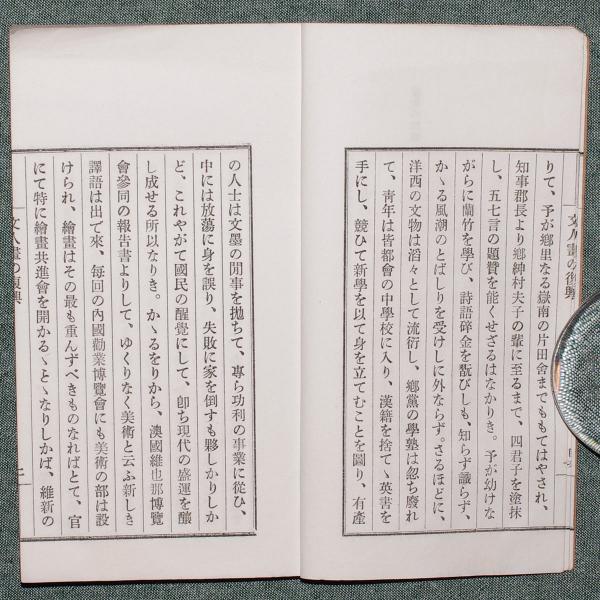 りて、予が鄕里なる嶽南の片田舍までももてはやされ、
知事郡長より鄕紳村夫子の輩に至るまで、四君子を塗抹
し、五七言の題贊を能くせざるはなかりき。予が幼けな
がらに蘭竹を學び、詩語碎金を翫びしも、知らず識らず、
かゝる風潮のとばしりを受けしに外ならず。さるほどに、
洋西の文物は滔々として流衍し、鄕黨の學塾は忽ち廢れ
て、靑年は皆都會の中學校に入り、漢籍を捨てゝ英書を
手にし、競ひて新學を以て身を立てむことを圖り、有產
文人畫の復興
の人士は文墨の閒事を拋ちて、專ら功利の事業に從ひ、
中には放蕩に身を誤り、失敗に家を倒すも夥しかりしか
ど、これやがて國民の醒覺にして、卽ち現代の盛運を釀
し成せる所以なりき。かゝるをりから、澳國維也那博覽
會參同の報告書よりして、ゆくりなく美術と云ふ新しき
譯語は出で來、每回の內國勸業博覽會にも美術の部は設
けられ、繪畫はその最も重んずべきものなればとて、官
にて特に繪畫共進會を開かるゝとゝなりしかば、維新の
文人畫の復興